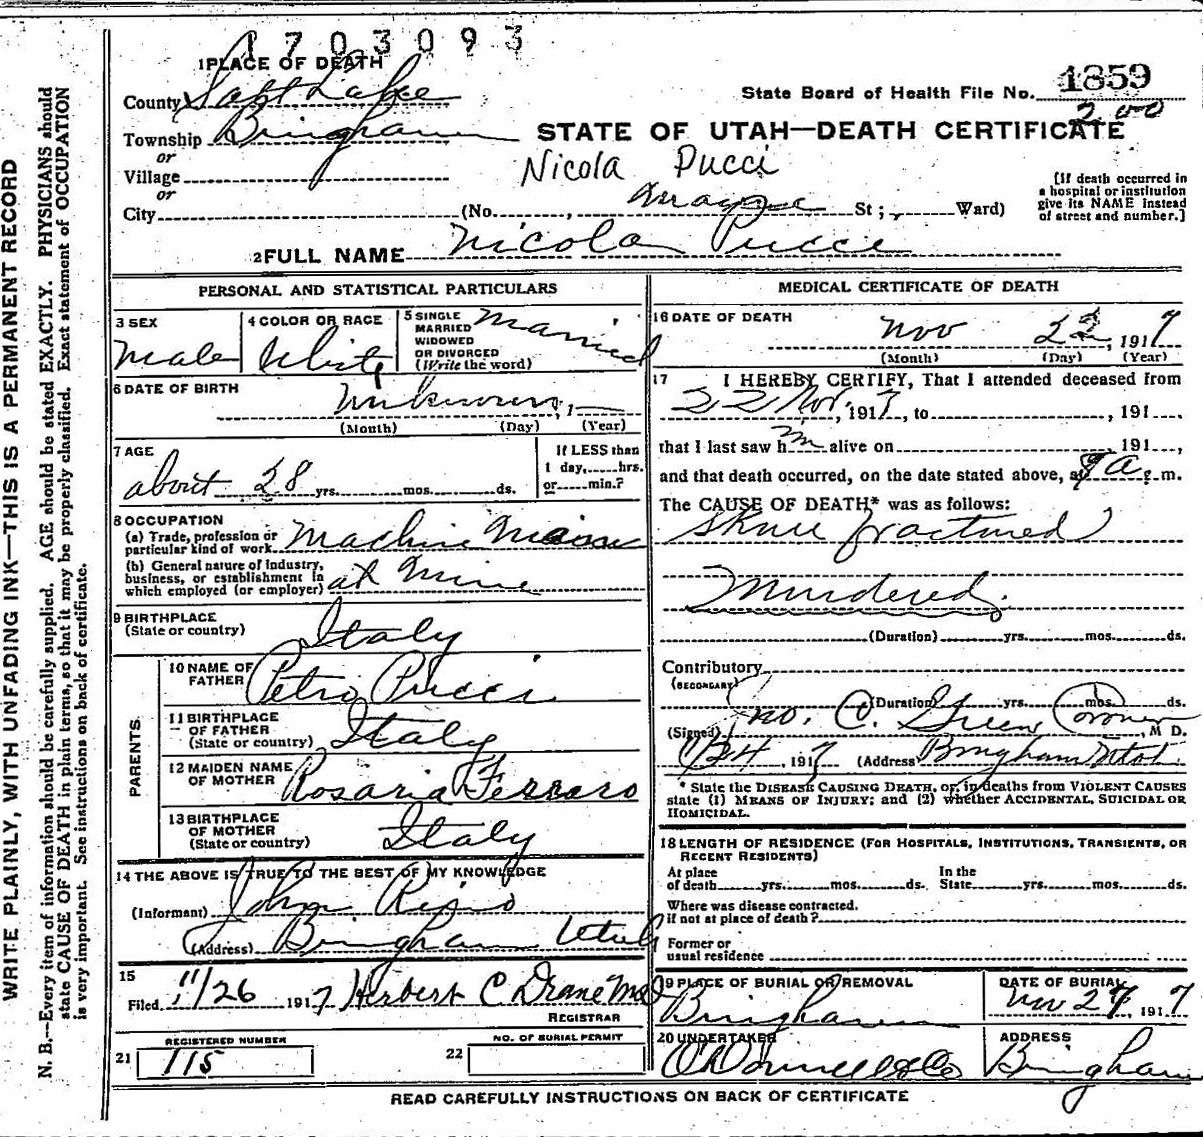 1703093
1 PLACE OF DEATH
County Salt Lake
State Board of Health File No. 1859
200
Township Bingham
STATE OF UTAH—DEATH CERTIFICATE
or
Village
Nicola Pucci
[If death occurred in
a hospital or institution
give its NAME instead
of street and number.]
or
City (No. , St; Ward)
2 FULL NAME Nicola Pucci
PERSONAL AND STATISTICAL PARTICULARS
3 SEX
Male
4 COLOR OR RACE
White
5 SINGLE
MARRIED
WIDOWED
OR DIVORCED
(Write the word)
Married
6 DATE OF BIRTH
Unknown, 1—
(Month) (Day) (Year)
7 AGE
about 28 yrs. mos. ds.
If LESS than
1 day, hrs.
or min.?
8 OCCUPATION
(a) Trade, profession or
particular kind of work Machine
(b) General nature of industry,
business, or establishment in
which employed (or employer) at Mine
9 BIRTHPLACE
(State or country) Italy
PARENTS
10 NAME OF
FATHER Petro Pucci
11 BIRTHPLACE
OF FATHER
(State or country) Italy
12 MAIDEN NAME
OF MOTHER Rosaria Ferraro
13 BIRTHPLACE
OF MOTHER
(State or country) Italy
14 THE ABOVE IS TRUE TO THE BEST OF MY KNOWLEDGE
(Informant) John
(Address) Bingham Utah
15
Filed 11/26 1917 Herbert C Drane MD
REGISTRAR
21
REGISTERED NUMBER
115
22
NO. OF BURIAL PERMIT
MEDICAL CERTIFICATE OF DEATH
16 DATE OF DEATH
Nov 22, 1917
(Month) (Day) (Year)
17 I HEREBY CERTIFY, That I attended deceased from
22 Nov. 1917, to , 191 ,
that I last saw h m alive on 191 ,
and that death occurred, on the date stated above, at 9 a. m.
The CAUSE OF DEATH* was as follows:
Skull fractured
Murdered.
(Duration) yrs. mos. ds.
Contributory
(SECONDARY)
(Duration) yrs. mos. ds.
(Signed) Jno. C. Green Coroner, M D.
1917 (Address) Bingham Utah
* State the DISEASE CAUSING DEATH, or, in deaths from VIOLENT CAUSES
state (1) MEANS OF INJURY; and (2) whether ACCIDENTAL, SUICIDAL OR
HOMICIDAL.
18 LENGTH OF RESIDENCE (FOR HOSPITALS, INSTITUTIONS, TRANSIENTS, OR
RECENT RESIDENTS)
At place
of death yrs. mos. ds.
In the
State yrs. mos. ds.
Where was disease contracted.
if not at place of death?
Former or
usual residence
19 PLACE OF BURIAL OR REMOVAL
Bingham
DATE OF BURIAL
Nov 27, 1917
20 UNDERTAKER
O'Donnell & Co
ADDRESS
Bingham
READ CAREFULLY INSTRUCTIONS ON BACK OF CERTIFICATE
WRITE PLAINLY, WITH UNFADING INK—THIS IS A PERMANENT RECORD
N. B.—Every item of information should be carefully supplied. AGE should be stated EXACTLY. PHYSICIANS should
state CAUSE OF DEATH in plain terms, so that it may be properly classified. Exact statement of OCCUPATION
is very important. See instructions on back of certificate.